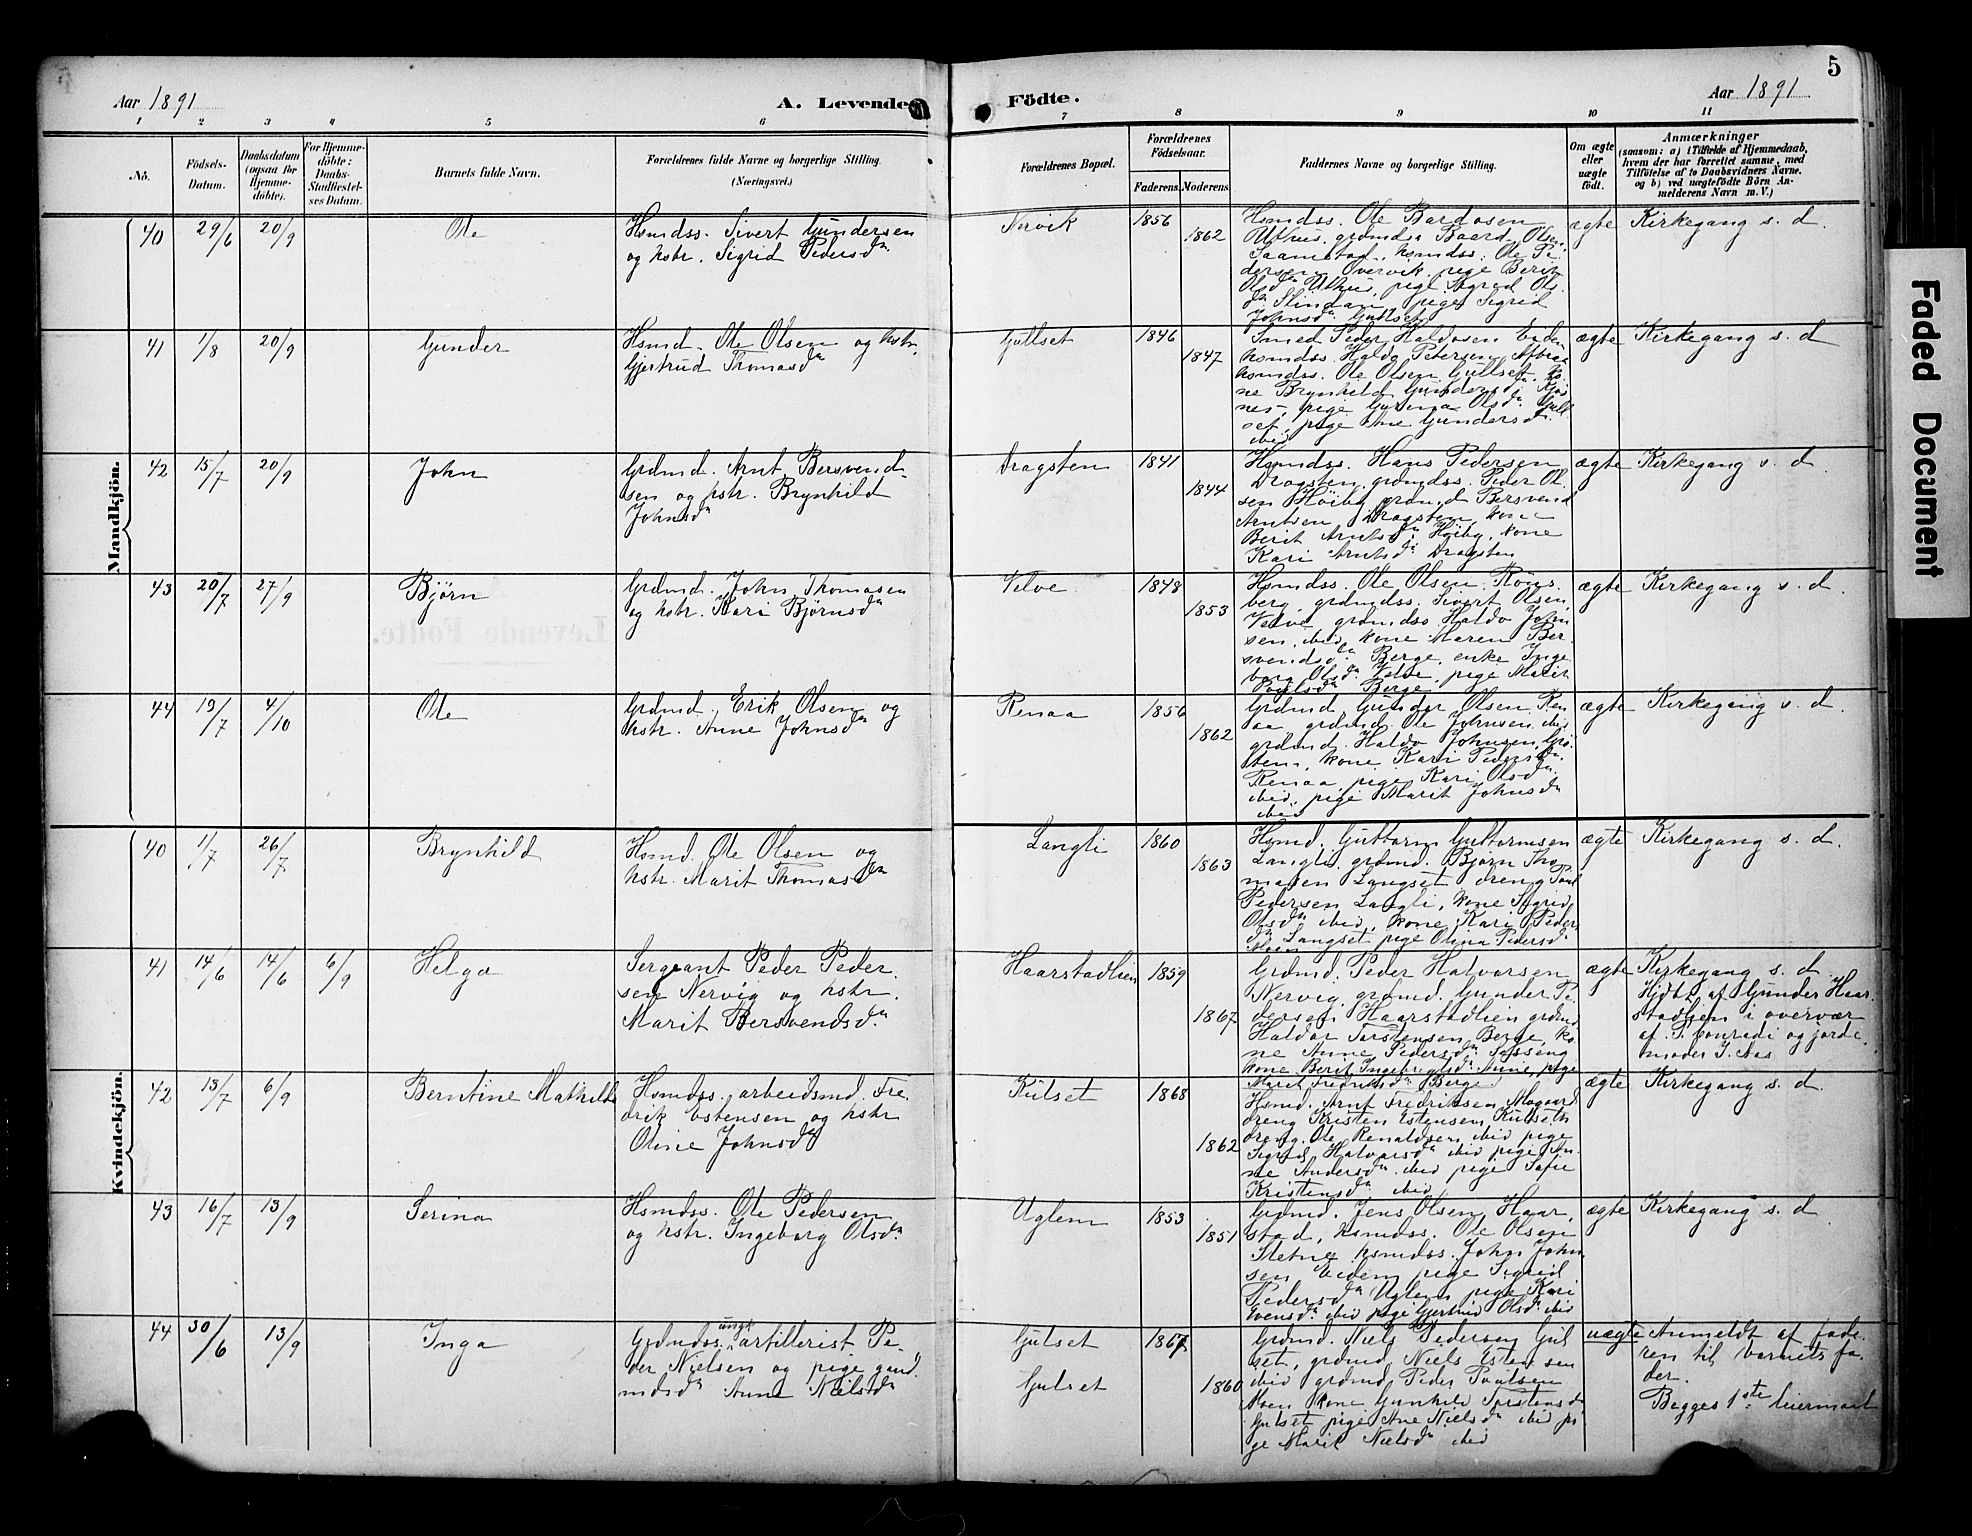 5
Aar 1891
A. Levende
Födte.
Aar 1891
1 2 3 4 5 6 7 8 9 10 11
No.
Födsels-
Datum.
Daabsdatum
(ogsaa for
Hjemme-
döbte).
For Hjemme-
döbte:
Daabs-
Stadfæstel-
ses Datum.
Barnets fulde Navn.
Forældrenes fulde Navne og borgerlige Stilling.
(Næringsvei.)
Forældrenes Bopæl.
Forældrenes
Födselsaar.
Faderens. Moderens.
Faddernes Navne og borgerlige Stilling.
Om ægte
eller
uægte
födt.
Anmærkninger
(saasom: a) i Tilfælde af Hjemmedaab,
hvem der har forrettet samme, med
Tilföielse af to Daabsvidners Navne.
og b) ved uægtefödte Börn An-
melderens Navn m. V.)
Mandkjön.
40 29/6 20/9 Ole
Hsmdss. Sivert Gundersen
og hstr. Sigrid Pedersdn
Nervik 1856 1862
Hsmdss. Ole Bardosen
Uthus, grdmds. Baard Olsen
Saamstad, hsmdss. Ole Pe-
dersen Overvik, pige Berit
Olsdn Uthus, pige Sigrid Ols-
dn Slindan, pige Sigrid
Johnsdn Gullset
ægte Kirkegang s. d.
41 1/8 20/9 Gunder
Hsmd. Ole Olsen og hstr.
Gjertrud Thomasdn
Gullset 1846 1847
Smed Peder Haldosen
hsmdss. Haldo Petersen
hsmdss. Ole Olsen Gullset, ko-
ne Brynhild Gundersdn
nes, pige Gurina Olsdn Gull-
set, pige Ane Gundersdn
ibid
ægte Kirkegang s. d
42 15/7 20/9 John
Grdmd. Arnt Bersvend-
sen og hstr. Brynhild
Johnsdn
Dragsten 1841 1844
Hsmdss. Hans Pedersen
Dragsten, grdmdss. Peder Ol-
sen Höiby, grdmd Bersvend
Arntsen Dragsten, kone
Berit Arntsdn Höiby, kone
Kari Arntsdn Dragsten
ægte Kirkegang s. d.
43 20/7 27/9 Björn
Grdmd. John Thomasen
og hstr. Kari Björnsdn
Velve 1848 1853
Hsmdss. Ole Olsen Röns-
berg, grdmdss. Sivert Olsen
Velve, grdmdss. Haldo John-
sen, ibid, kone Maren Ber-
svendsdn Berge, enke Inge-
borg Olsdn Velve, pige Marit
Poulsdn Berge
ægte Kirkegang s. d.
44 19/7 4/10 Ole
Grdmd. Erik Olsen og
hstr. Anne Johnsdn
Renaa 1856 1862
Grdmd. Gunder Olsen Ren-
aa, grdmd. Ole Johnsen ibid
grdmd. Haldo Johnsen Grö-
tem, kone Kari Pedersdn
Renaa, pige Kari Olsdn
ibid, pige Marit Johnsdn
ibid
ægte Kirkegang s. d.
Kvindekjön.
40 1/7 26/7 Brynhild
Hsmd. Ole Olsen og
hstr. Marit Thomasdn
Langli 1860 1863
Hsmd. Guttorm Guttormsen
Langli, grdmd. Björn Tho-
masen Langset, dreng Poul
Pedersen Langli, kone Sigrid
Olsdn ibid, kone Kari Peders-
dn Langset, pige Olina Pedersdn
Moen
ægte Kirkegang s. d.
41 14/6 14/6 6/9 Helga
Sergeant Peder Peder-
sen Nervig og hstr.
Marit Bersvendsdn
Haarstadlien 1859 1867
Grdmd. Peder Halvorsen
Nervig, grdmd. Gunder Pe-
dersen Haarstadlien grdmd
Haldor Torstensen Berge, ko-
ne Anne Pedersdn Sesseng
kone Berit Ingebrigtsdn Aune, pige
Marit Fredriksdn Berge
ægte Kirkegang s. d.
Hjdbt. af Gunder Haar-
stadlien i overvær
af P. Conradi og jorde-
moder I. Aas
42 13/7 6/9 Berntine Mathilde
Hsmdss. arbeidsmd. Fre-
drik Estensen og hstr
Oline Johnsdn
Kulset 1868 1862
Hsmd. Arnt Fredriksen Mogaard
dreng Kristen Estensen Kulseth
dreng Ole Renaldsen ibid pige
Sigrid Halvorsdn ibid pige An-
ne Andersdn ibid pige Sofie
Kristensdn ibid
ægte Kirkegang s. d.
43 16/7 13/9 Serina
Hsmdss. Ole Pedersen
og hstr. Ingeborg Olsdn
Uglem 1853 1851
Grdmd. Jens Olsen Haar-
stad, hsmdss. Ole Olsen
Sletne hsmdss. John John-
sen Eidem, pige Sigrid
Pedersdn Uglem, pige Kari
Evensdn ibid pige Gjertrud Olsdn ibid
ægte Kirkegang s. d
44 30/6 13/9 Inga
ungk.
Grdmdss. artillerist Pe-
der Nielsen og pige gaard-
mdsdn Anne Nielsdn
Gulset
Gulset
1867 1860
Grdmd. Niels Pedersen Gul-
set, grdmd Niels Estensen
ibid grdmd Peder Poulsen
Moen kone Gunhild Torstensdn
Gulset pige Ane Nielsdn ibid pi-
ge Marit Nielsdn ibid
uægte Anmeldt af fade-
ren til barnets fa-
der.
Begges 1ste leiermaal
Faded Document